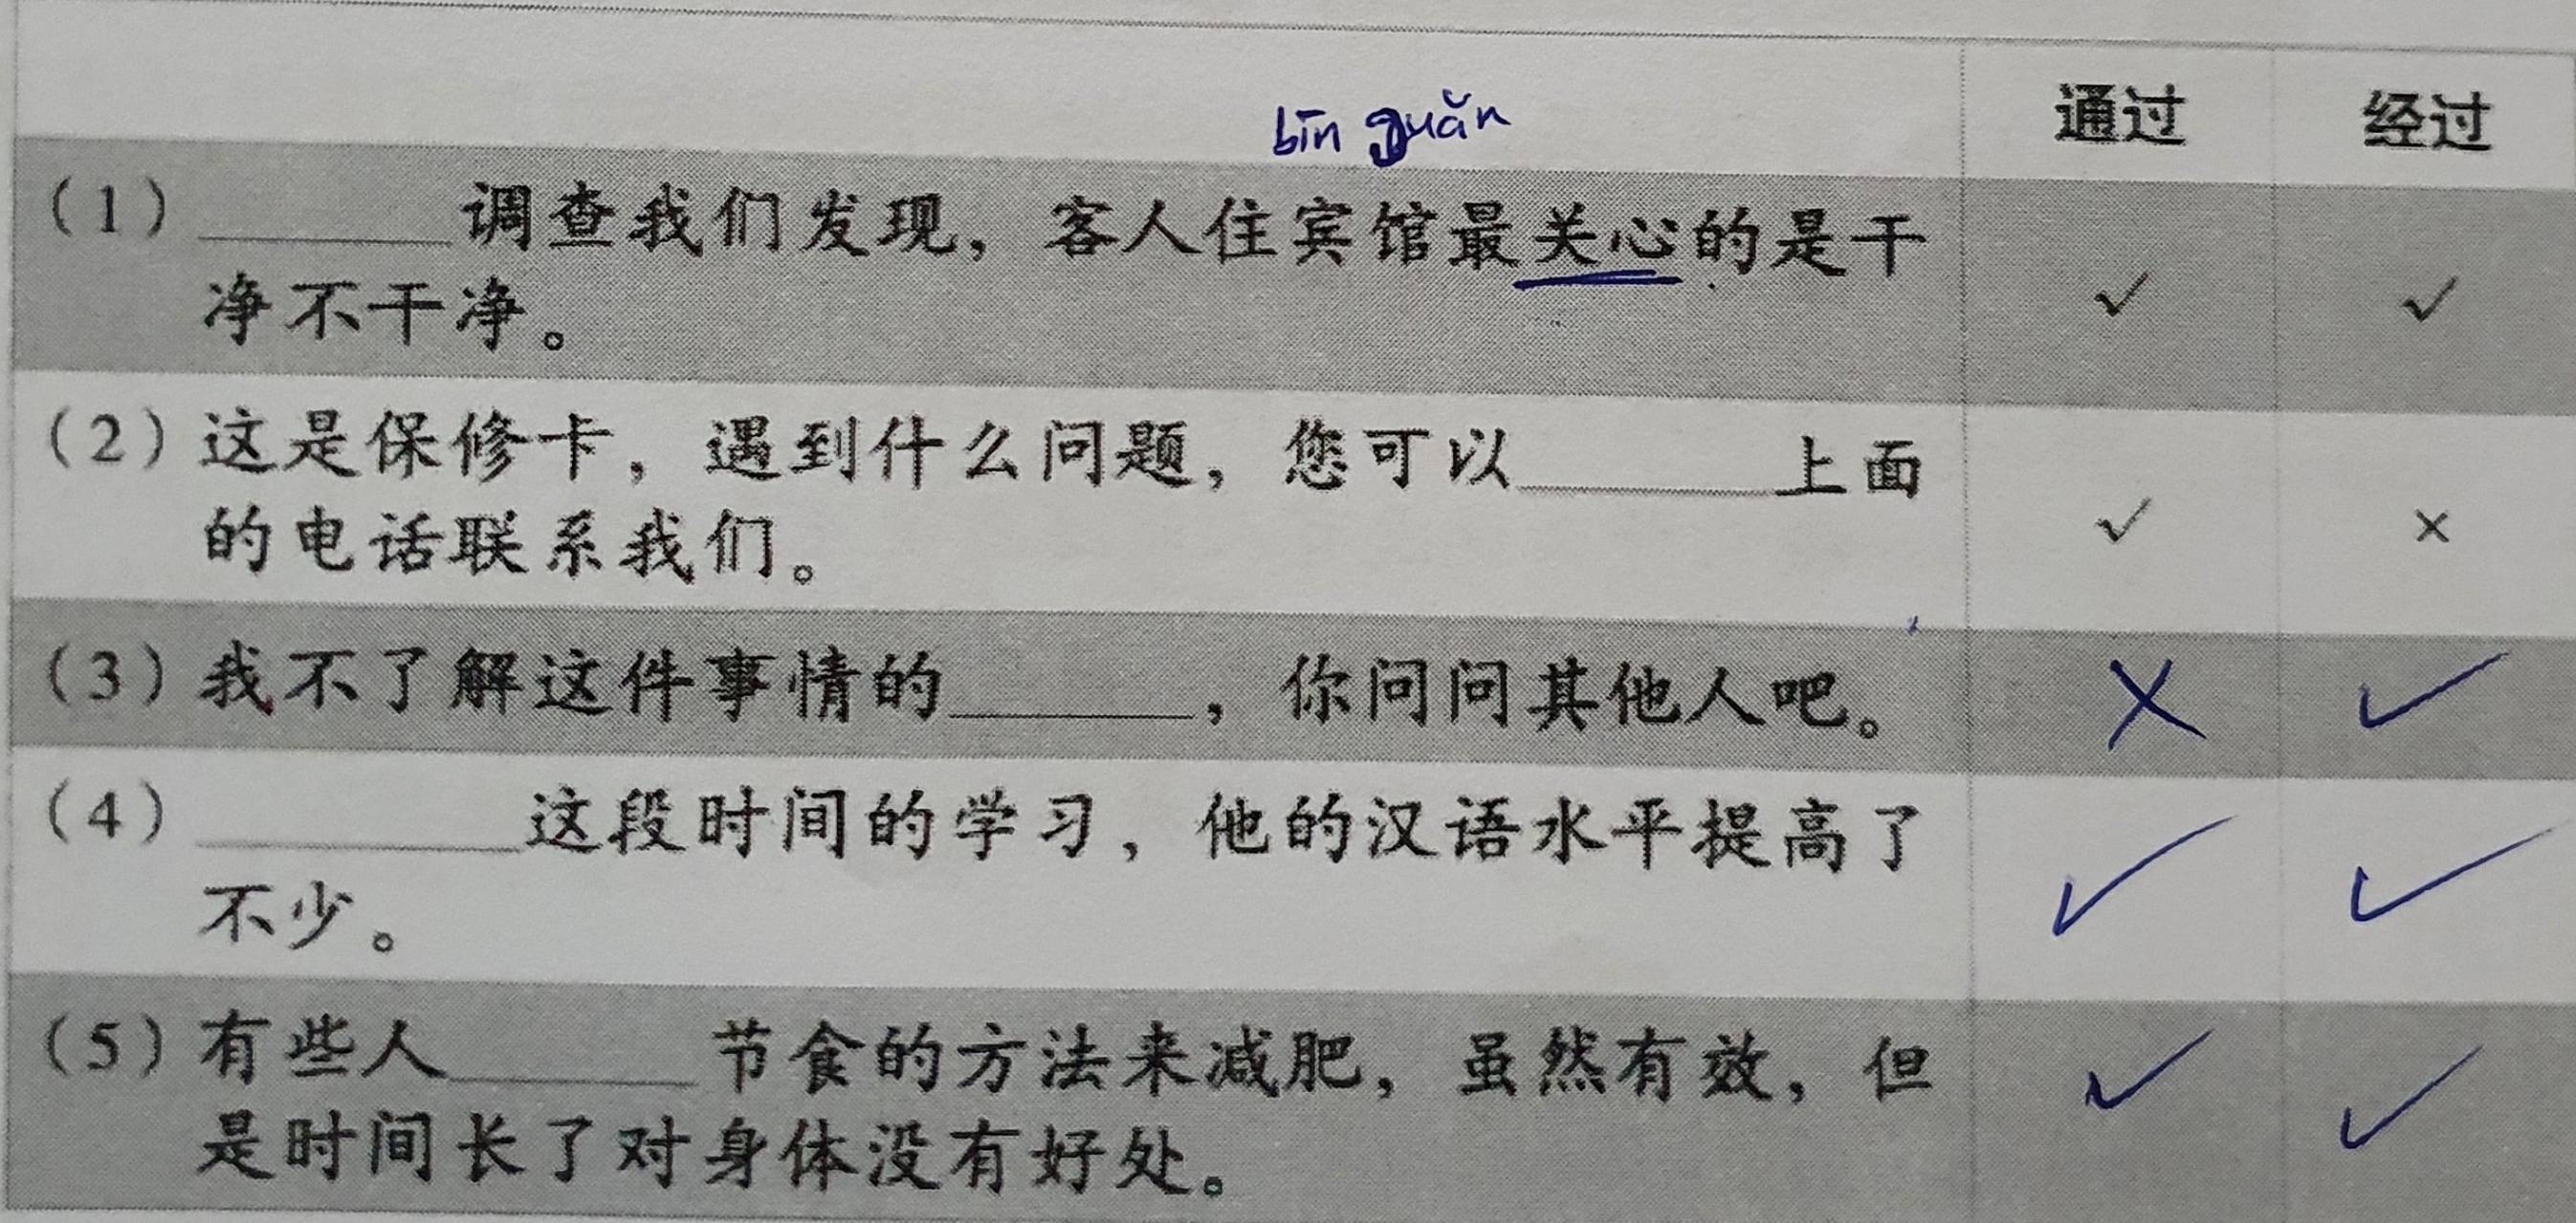 通过 经过
bīn guǎn
(1) ______调查我们发现，客人住宾馆最关心的是干 ✓ ✓
净不干净。
(2) 这是保修卡，遇到什么问题，您可以______上面 ✓ ×
的电话联系我们。
(3) 我不了解这件事情的______，你问问其他人吧。 ✗ ✓
(4) ______这段时间的学习，他的汉语水平提高了 ✓ ✓
不少。
(5) 有些人______节食的方法来减肥，虽然有效，但 ✓ ✓
是时间长了对身体没有好处。